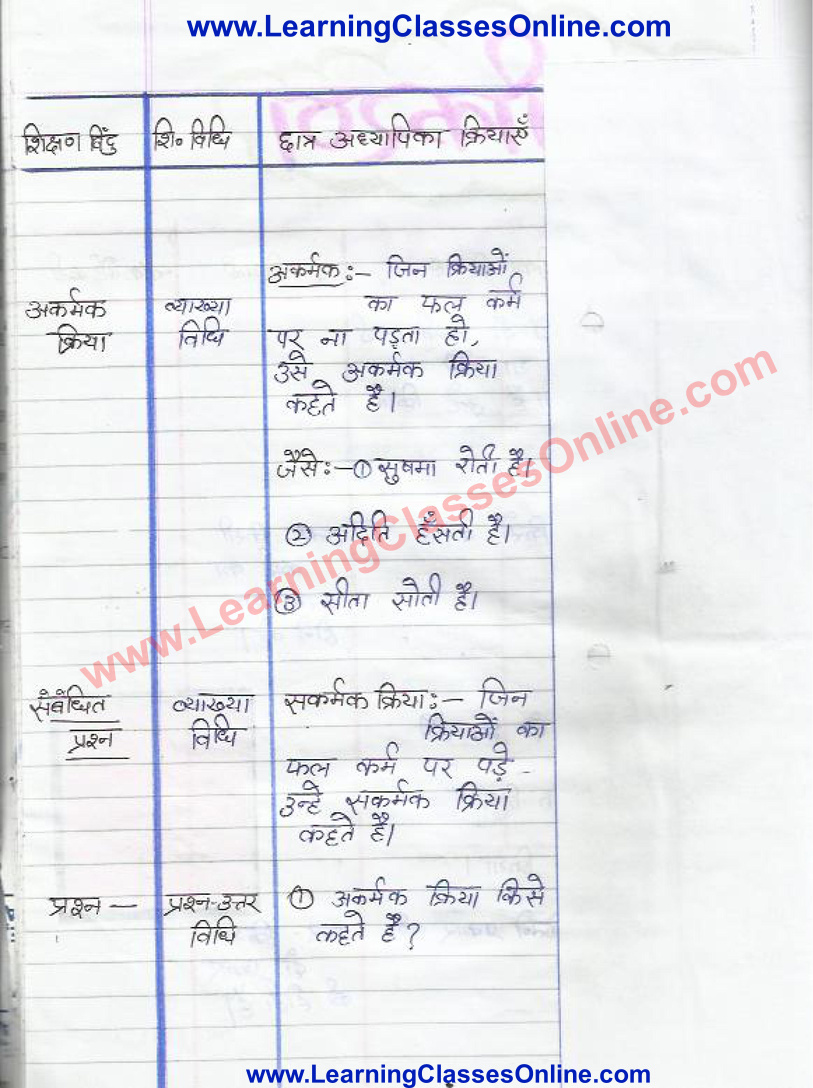 www.LearningClassesOnline.com
शिक्षण बिंदु शि॰ विधि छात्र अध्यापिका क्रियाएँ
अकर्मक क्रिया
व्याख्या विधि
अकर्मक :- जिन क्रियाओं
का फल कर्म
पर ना पड़ता हो,
उसे अकर्मक क्रिया
कहते है।
जैसे :- ① सुषमा रोती है।
② अदिति हँसती है।
③ सीता सोती है।
www.LearningClassesOnline.com
संबंधित
प्रश्न
व्याख्या
विधि
सकर्मक क्रिया :- जिन
क्रियाओं का
फल कर्म पर पड़े
उन्हे सकर्मक क्रिया
कहते है।
प्रश्न —
प्रश्न-उत्तर
विधि
① अकर्मक क्रिया किसे
कहते है?
www.LearningClassesOnline.com